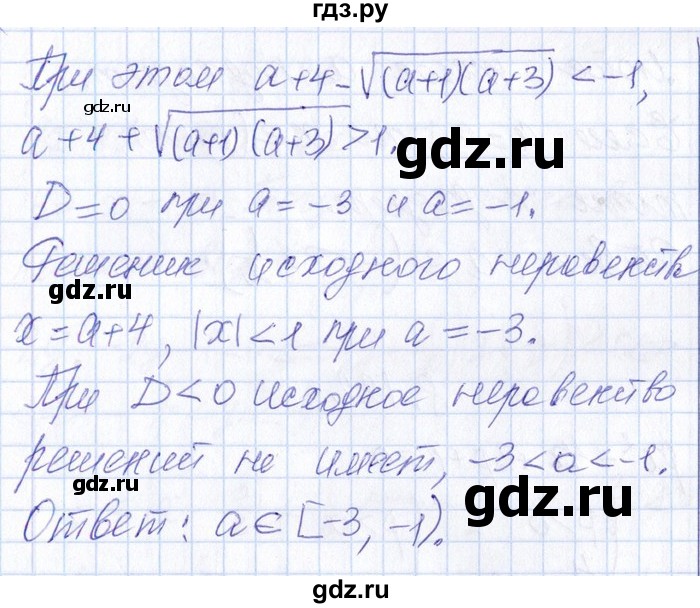 гдз.ру
При этом a+4-√(a+1)(a+3) < -1,
gdz.ru
a+4+√(a+1)(a+3) > 1.
gdz.ru
D=0 при a=-3 и a=-1.
gdz.ru
исходного неравенств
gdz.ru
x=a+4, |x|<1 при a=-3.
gdz.ru
При D<0 исходное неравенство
решений не имеет, -3<a<-1.
gdz.ru
gdz.ru
Ответ: a∈[-3, -1).
gdz.ru